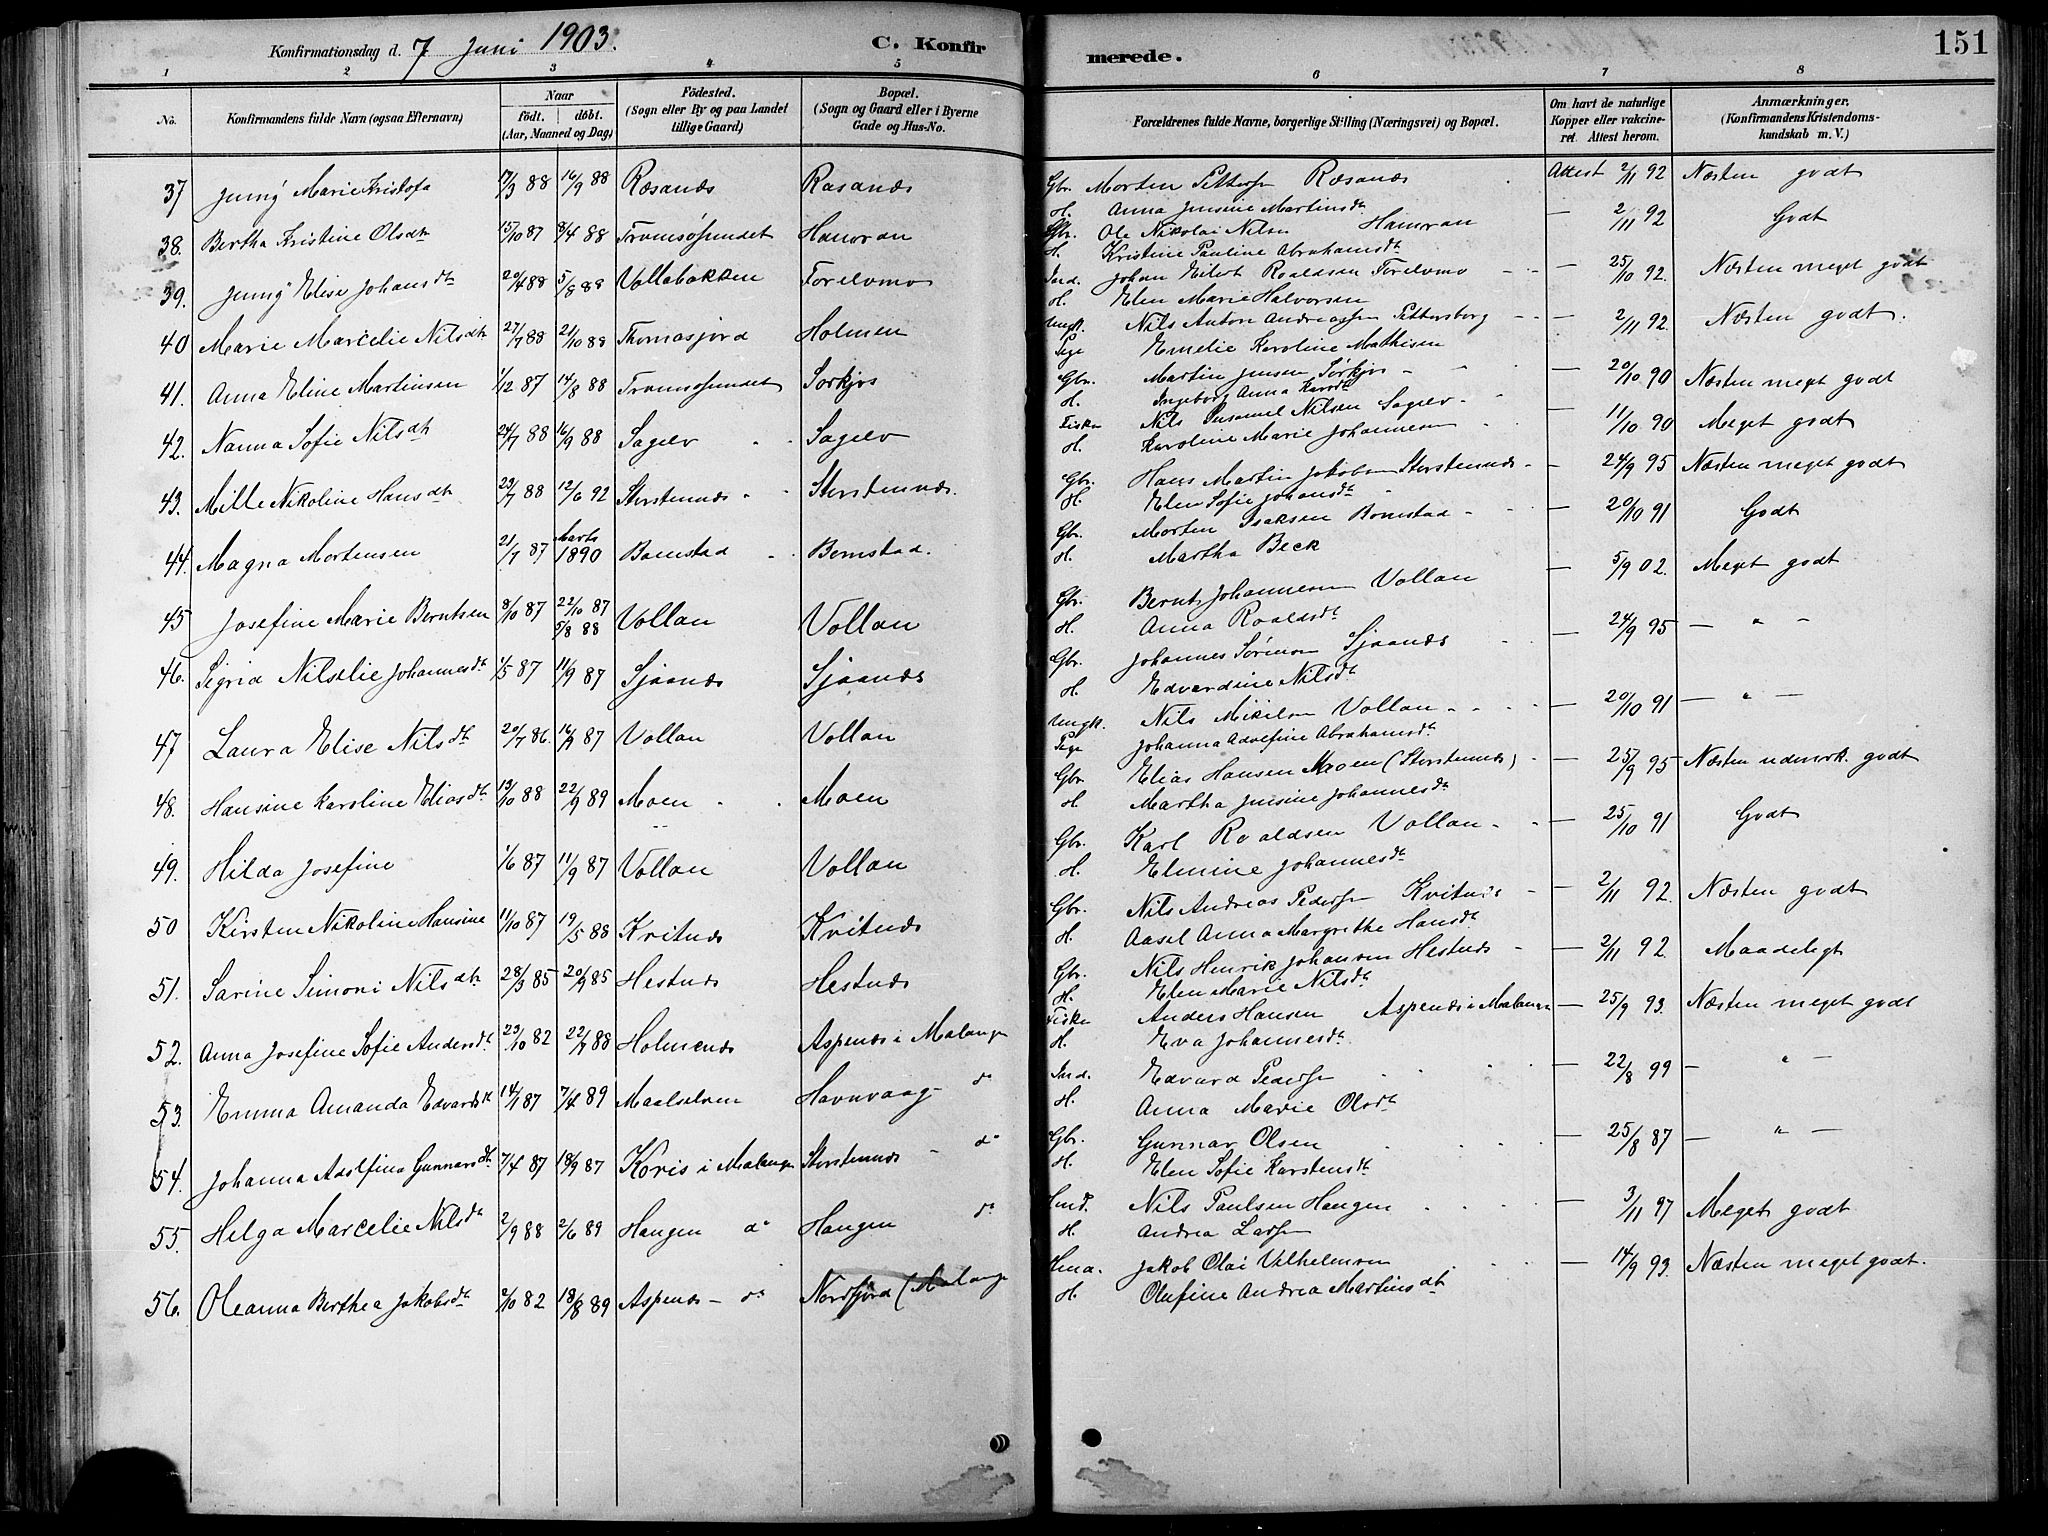 Konfirmationsdag d. 7 Juni 1903. C. Konfirmerede. 151
1 2 3 4 5 6 7 8
No. Konfirmandens fulde Navn (ogsaa Efternavn) Naar født. døbt. (Aar, Maaned og Dag) Fødested. (Sogn eller By og paa Landet tillige Gaard) Bopæl. (Sogn og Gaard eller i Byerne Gade og Hus-No. Forældrenes fulde Navne, borgerlige Stilling (Næringsvei) og Bopæl. Om havt de naturlige Kopper eller vakcineret. Attest herom. Anmærkninger. (Konfirmandens Kristendomskundskab m. V.)
37 Jenny Marie Kristofa 17/3 88 16/9 88 Ræsanes Rasanes Gbr. Morten Pettersen Ræsanes Attest 2/11 92 Næsten godt
H. Anna Jensine Martinsdt
38. Bertha Kristine Olsdt 15/10 87 8/4 88 Tromsøsundet Hamran Gbr. Ole Nikolai Nilsen Hamran — 2/11 92 Godt
H. Kristine Pauline Abrahamsdt
39. Jenny Elise Johansdt 20/4 88 5/8 88 Vollabakken Forelvmo Ind. Johan Eilert Roaldsen Forelvmo — 25/10 92. Næsten meget godt
H. Elen Marie Halvorsen
40 Marie Marcelie Nilsdt 27/7 88 21/10 88 Thomasjord Holmen Ungk. Nils Anton Andreassen Pettersborg — 2/11 92. Næsten godt.
Pige Emelie Karoline Mathisen
41. Anna Eline Martinsen 1/12 87 14/8 88 Tromsøsundet Sørkjos Gbr. Martin Jensen Sørkjos — 20/10 90 Næsten meget godt
H. Ingeborg Anna Larsdt
42. Nanna Sofie Nilsdt 24/7 88 16/9 88 Sagelv Sagelv Fisker Nils Samuel Nilsen Sagelv — 11/10 90 Meget godt
H. Karoline Marie Johannesen
43. Mille Nikoline Hansdt 23/7 88 12/6 92 Storstennes Storstennes. Gbr. Hans Martin Jakobsen Storstennes — 24/9 95 Næsten meget godt
H. Elen Sofie Johansdt
44. Magna Mortensen 21/7 87 Marts 1890 Bomstad Bomstad. Gbr. Morten Isaksen Bomstad — 20/10 91 Godt
H. Martha Beck
45 Josefine Marie Berntsen 8/10 87 22/10 87 5/8 88 Vollan Vollan Gbr. Bernt Johannesen Vollan — 5/9 02. Meget godt
H. Anna Roaldsdt
46. Sigrid Nilselie Johannesdt 1/5 87 11/9 87 Sjaanes Sjaanes Gbr. Johannes Sørensen Sjaanes — 24/9 95 — " —
H. Edvardine Nilsdt
47 Laura Elise Nilsdt 20/7 86. 16/9 87 Vollan Vollan Ungk. Nils Mikilsen Vollan — 20/10 91 — " —
Pige Johanna Adolfine Abrahamsdt
48. Hansine Karoline Eliasdt 13/10 88 22/9 89 Moen Moen Gbr Elias Hansen Moen (Storstennes) — 25/9 95 Næsten udmerk. godt
H Martha Jensine Johannesdt
49. Hilda Josefine 1/6 87 11/9 87 Vollan Vollan Gbr. Karl Roaldsen Vollan — 25/10 91 Godt
H. Elenine Johannesdt
50 Kirsten Nikoline Hansine 11/10 87 19/5 88 Kvitnes Kvitnes Gbr. Nils Andreas Pedersen Kvitnes — 2/11 92. Næsten godt
H. Aasel Anna Margrethe Hansdt
51. Sarine Simoni Nilsdt 28/3 85 20/9 85 Hestnes Hestnes Gbr. Nils Henrik Johansen Hestnes — 2/11 92. Maadelegt
H. Elen Marie Nilsdt
52. Anna Josefine Sofie Andersdt 23/10 82 22/7 88 Holmenes Aspenes i Malangen Fisker Anders Hansen Aspenes i Malangen — 25/9 93. Næsten meget godt
H. Eva Johannesdt
53. Emma Amanda Edvardsdt 14/1 87 7/4 89 Maalselven Havnvaag do Ind. Edvard Pedersen — 22/8 99 — " —
H. Anna Marie Olsdt
54. Johanna Adolfina Gunnarsdt 7/4 87 18/9 87 Koris i Malangen Storstennes do Gbr. Gunnar Olsen — 25/8 87 — " —
H. Elen Sofie Karstensdt
55. Helga Marcelie Nilsdt 2/9 88 2/6 89 Hangen do Hangen do Ind. Nils Paulsen Hangen — 3/11 97 Meget godt
H. Andrea Larsen
56. Oleanna Berthea Jakobsdt 2/10 82 18/8 89 Aspenes — do Nordfjord (Malangen Hma. Jakob Olai Vilhelmsen — 14/9 93. Næsten meget godt.
H. Olufine Andrea Martinsdt